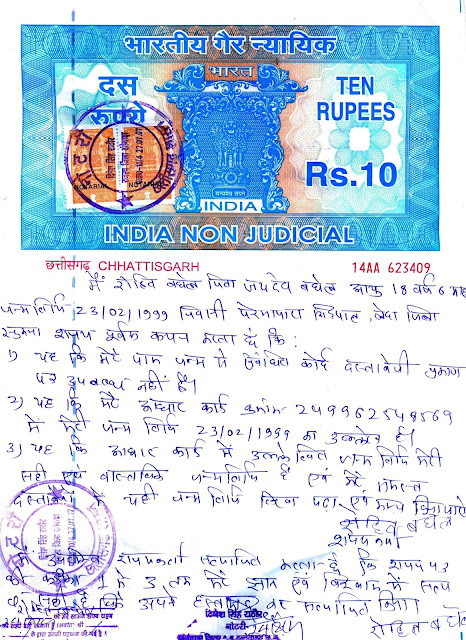 भारतीय गैर न्यायिक
भारत
दस
रुपये
TEN
RUPEES
Rs.10
सत्यमेव जयते
INDIA
INDIA NON JUDICIAL
NOTARIAL NOTARIAL
छत्तीसगढ़ CHHATTISGARH 14AA 623409
मैं रोहित बघेल पिता जयदेव बघेल आयु 18 वर्ष 6 माह
जन्मतिथि 23/02/1999 निवासी जिला
सुकमा शपथ पूर्वक कथन करता हूं कि:
1) यह कि मेरे पास जन्म से संबंधित कोई दस्तावेजी प्रमाण
पत्र उपलब्ध नहीं है।
2) यह कि मेरे आधार कार्ड क्रमांक 249962548569
में मेरी जन्म तिथि 23/02/1999 का उल्लेख है।
3) यह कि आधार कार्ड में उल्लेखित जन्म तिथि मेरी
सही एवं वास्तविक जन्मतिथि है एवं मेरे समस्त
यही जन्मतिथि लिखा पढ़ा एवं मान्य किया जाये
रोहित बघेल
शपथकर्ता
शपथकर्ता सत्यापित करता हूं कि शपथ पत्र
1 से 3 तक मेरे ज्ञान एवं विश्वास में सत्य
अपने हस्ताक्षर कर सत्यापित किया।
दिनेश सिंह राठौर
नोटरी
रोहित बघेल